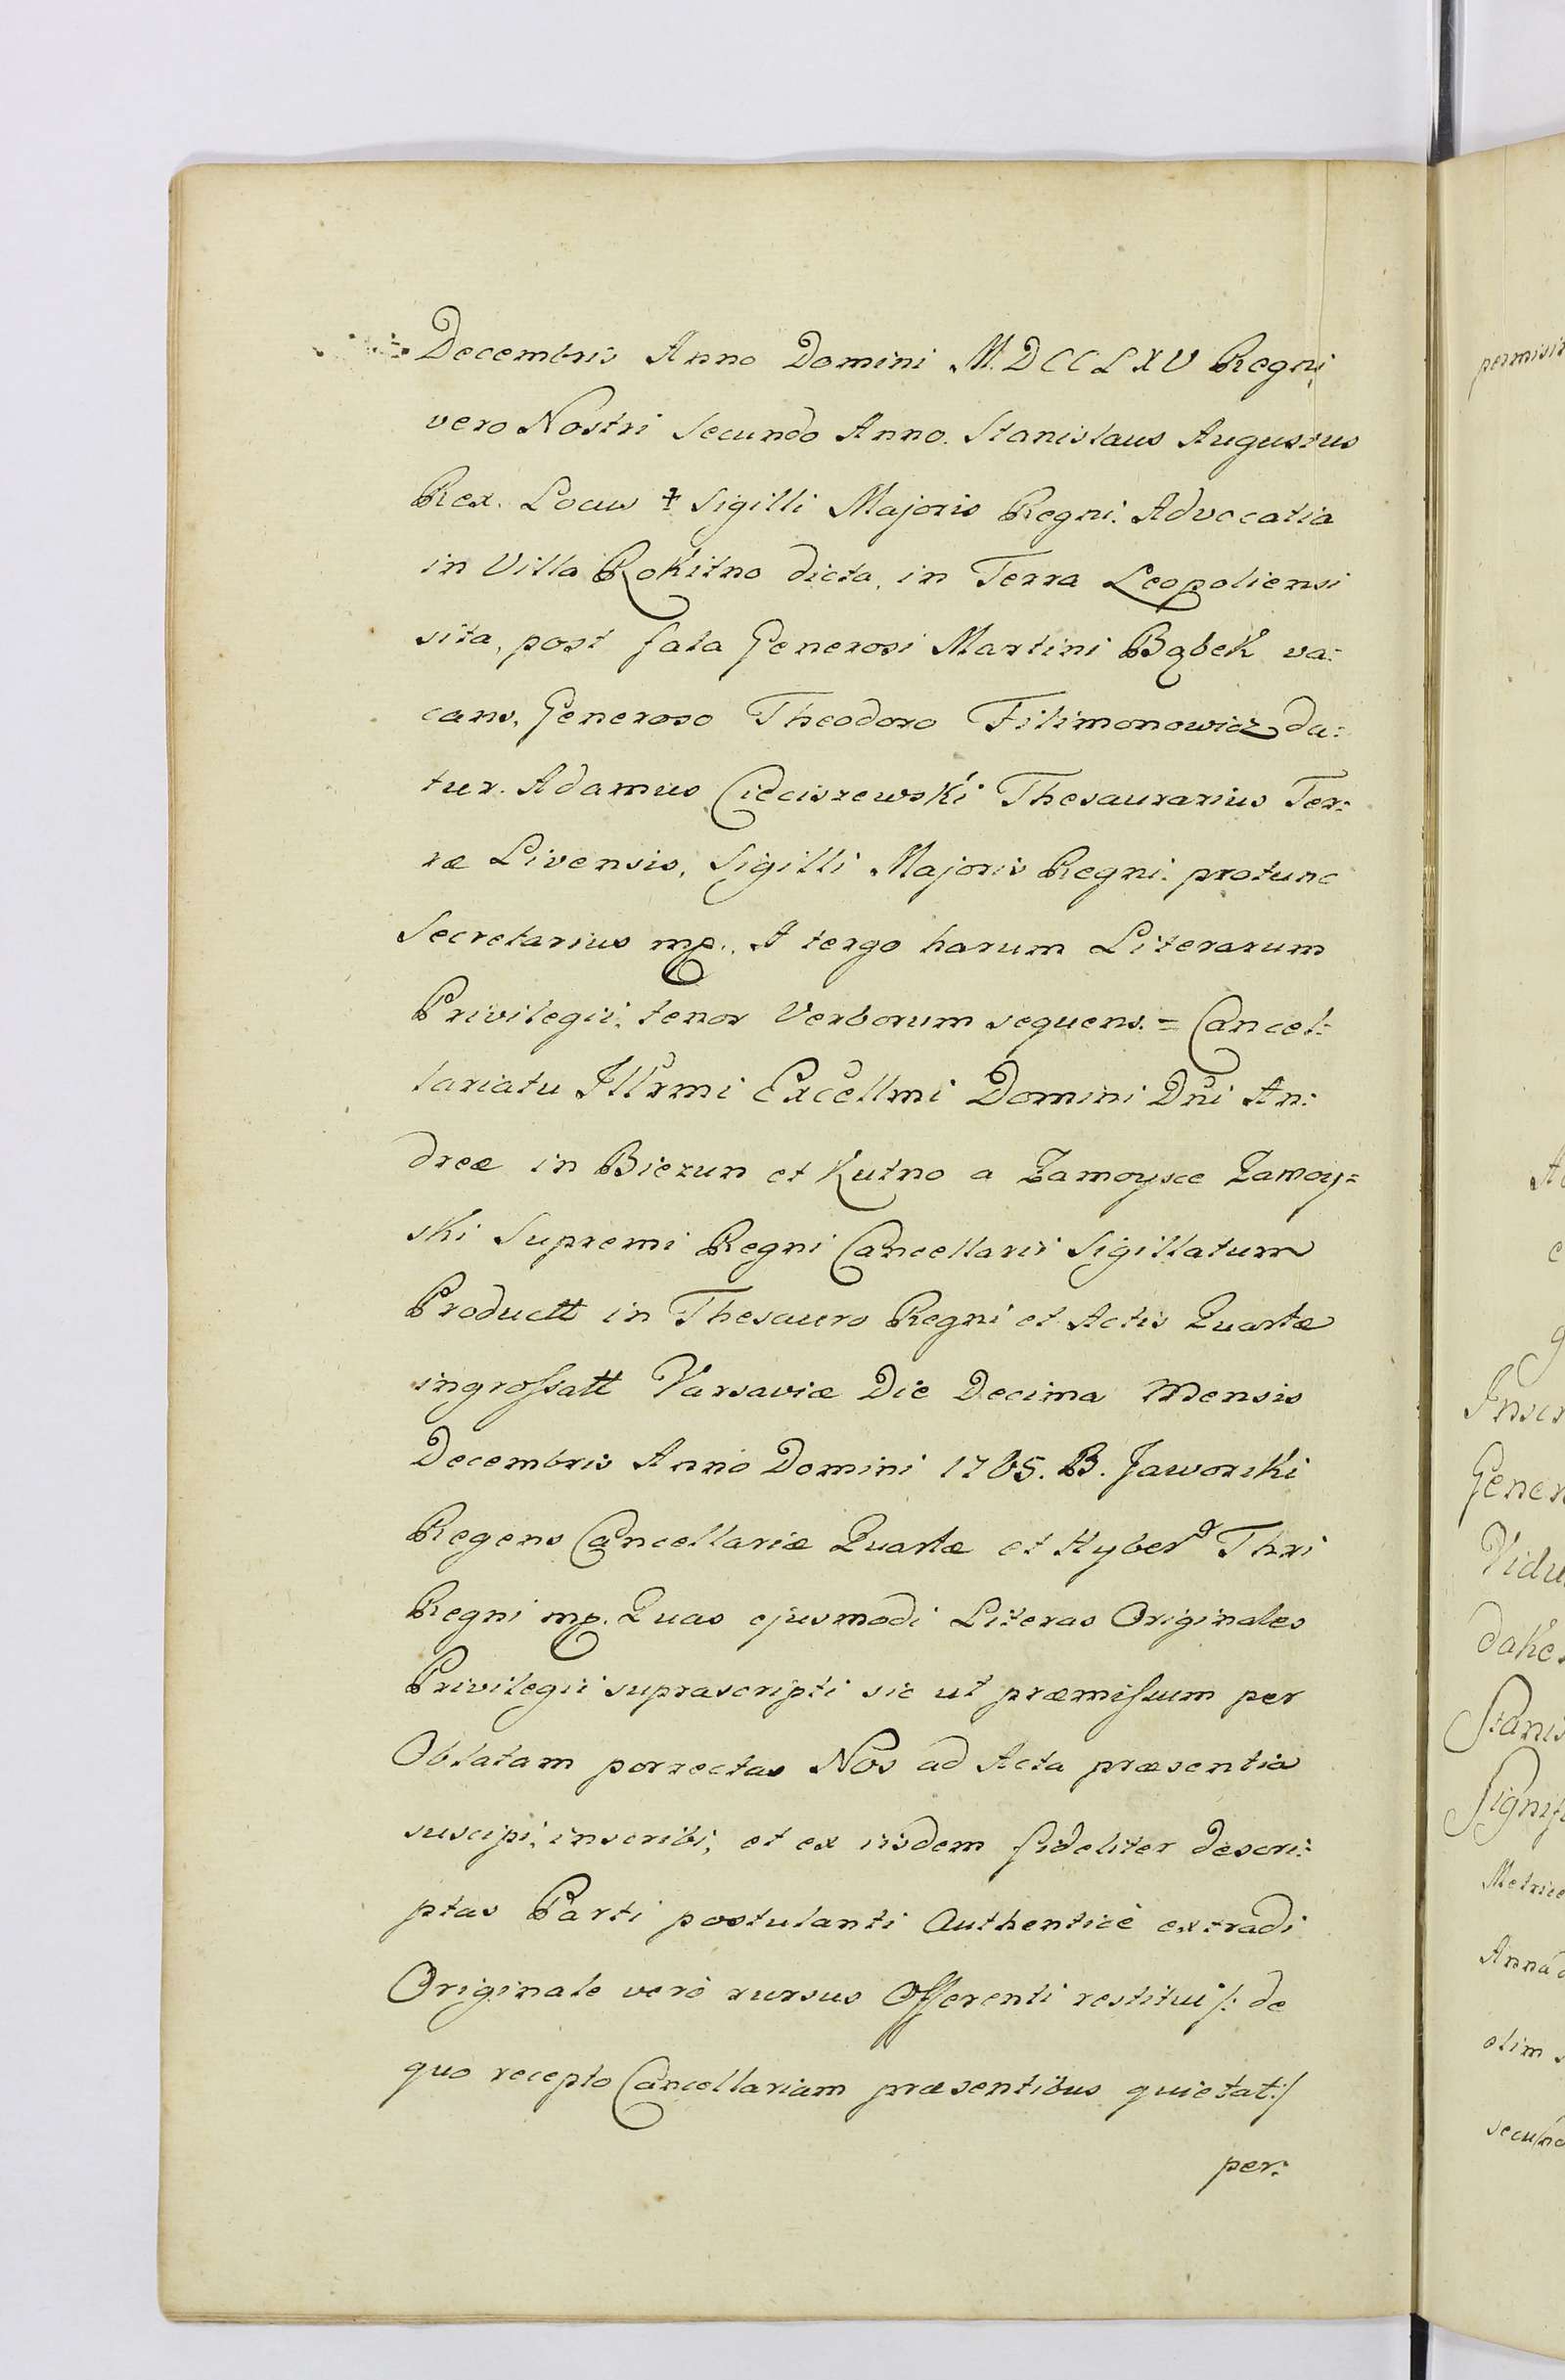 Decembris Anno Domini M.DCCLXV Regni
vero Nostri Secundo Anno. Stanislaus Augustus
Rex. Locus ‡ Sigilli Majoris Regni. Advocatia
in Villa Rokitno dicta, in Terra Leopoliensi
sita, post fata Generosi Martini Bąbek va:
cans, Generoso Theodoro Filimonowicz da:
tur. Adamus Cieciszewski Thesaurarius Ter:
ræ Livensis, Sigilli Majoris Regni protunc
Secretarius mp. A tergo harum Literarum
Privilegii, tenor Verborum sequens. = Cancel:
lariatu Illrmi Excellmi Domini Dni An:
dreæ in Biezun et Kutno a Zamoysce Zamoy=
ski Supremi Regni Cancellarii Sigillatum
Productt in Thesauro Regni et Actis Quartæ
ingrossatt Varsaviæ Die Decima Mensis
Decembris Anno Domini 1765. B. Jaworski
Regens Cancellariæ Quartæ et Hyber Thri
Regni mp. Quas ejusmodi Literas Originales
Privilegii suprascripti sic ut præmissum per
Oblatam porrectas Nos ad Acta præsentia
suscipi, inscribi, et ex iisdem fideliter descri:
ptas Parti postulanti Authenticè extradi
Originale verò rursus Offerenti restitui /: de
quo recepto Cancellariam præsentibus quietat :/
per:
permisit
Inscr
Gener
Vidu
dake
Stanis
Signif
Metrice
Anna
olim
secund